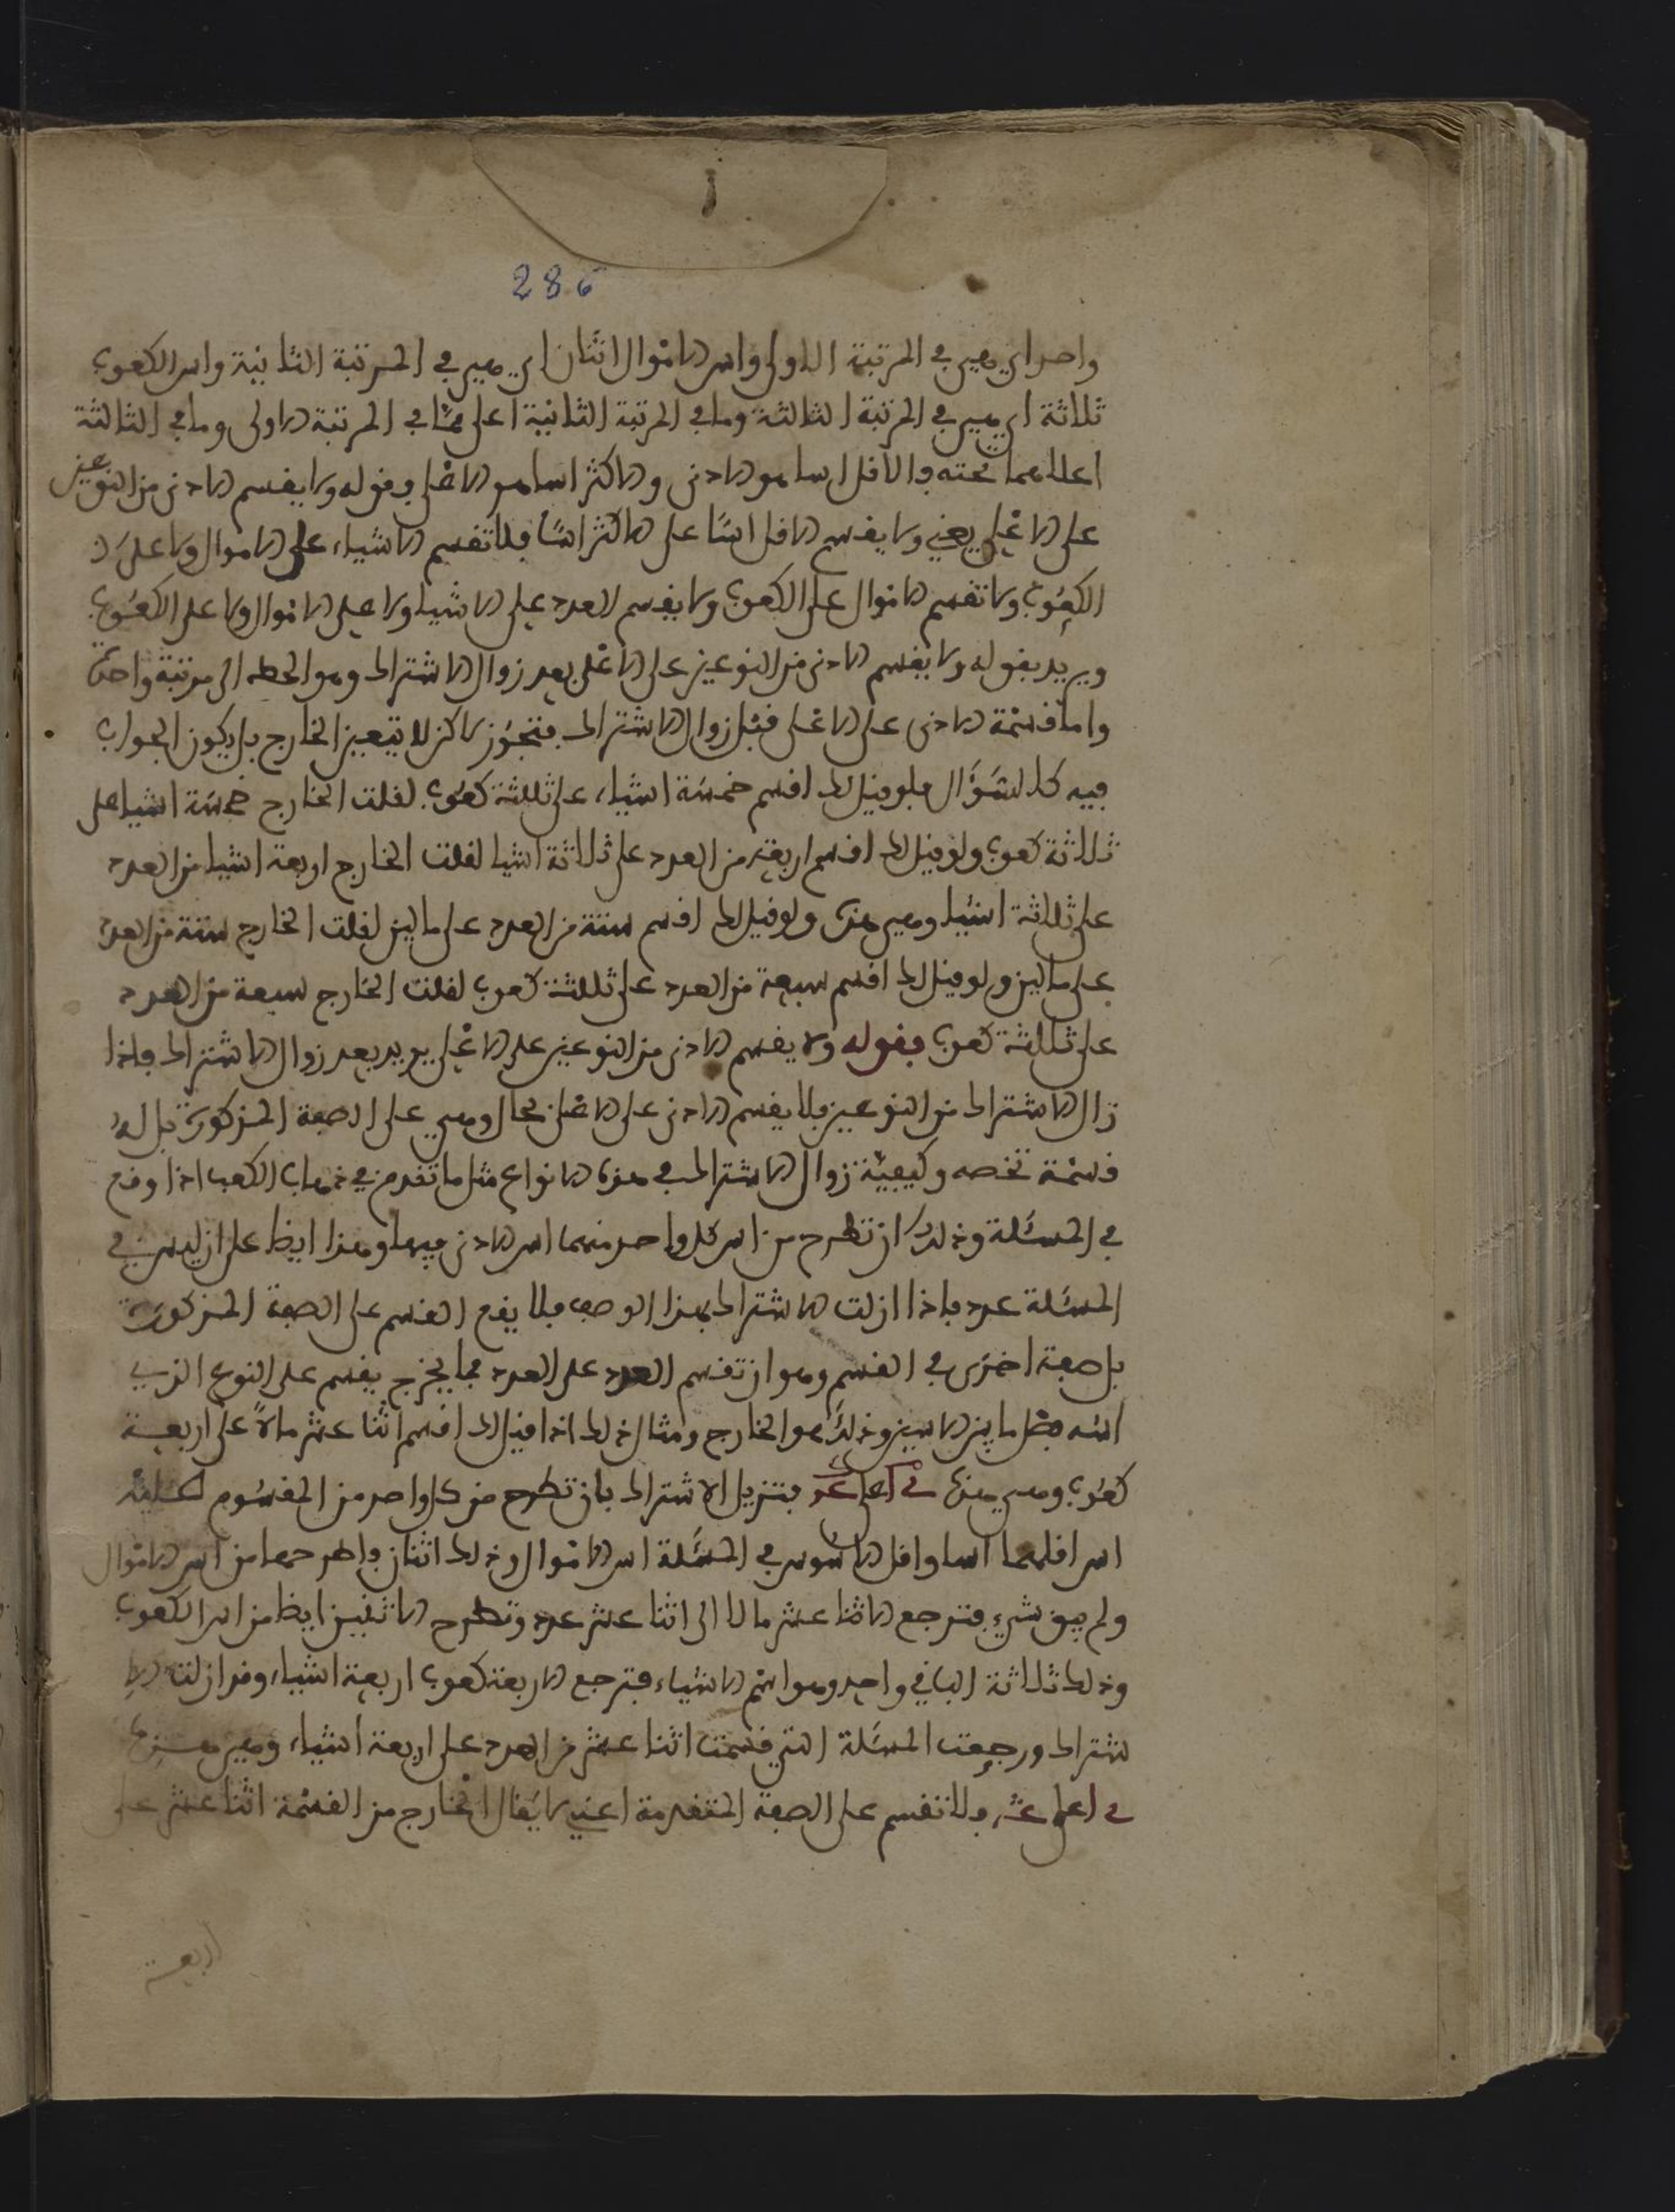 286
واحد اي هي في المرتبة الاولى واس الاموال اثنان اي هي في المرتبة الثانية واس الكعوب
ثلاثة اي هي في المرتبة الثالثة وما في المرتبة الثانية اعلى مما في المرتبة الاولى وما في الثالثة
اعلا مما تحته فالاقل اسا هو الادنى والاكثر اسا هو الاعلى وقوله ولا يقسم الادنى من النوعين
على الاعلى يعني ولا يقسم الاقل اسا على الاكثر اسا فلا تقسم الاشياء على الاموال ولا على
الكعوب ولا تقسم الاموال على الكعوب ولا يقسم العدد على الاشياء ولا على الاموال ولا على الكعوب
ويريد بقوله ولا يقسم الادنى من النوعين على الاعلى بعد زوال الاشتراك وهو الحط الى مرتبة واحدة
واما قسمة الادنى على الاعلى قبل زوال الاشتراك فتجوز لاكن لا يتعين الخارج بل يكون الجواب
فيه كالسؤال فلو قيل لك اقسم خمسة اشياء على ثلثة كعوب لقلت الخارج خمسة اشيا على
ثلاثة كعوب ولو قيل لك اقسم اربعة من العدد على ثلاثة اشيا لقلت الخارج اربعة اشيا من العدد
على ثلاثة اشيا وهي هذه ولو قيل لك اقسم ستة من العدد على مالين لقلت الخارج ستة من العدد
على مالين ولو قيل لك اقسم سبعة من العدد على ثلثة كعوب لقلت الخارج سبعة من العدد
على ثلثة كعوب فقوله ولا يقسم الادنى من النوعين على الاعلى يريد بعد زوال الاشتراك فاذا
زال الاشتراك من النوعين فلا يقسم الادنى على الاعلى بحال وهي على الصفة المذكورة بل له
قسمة تخصه وكيفية زوال الاشتراك في هذه الانواع مثل ما تقدم في ذهاب الكعب اذا وقع
في المسئلة وذلك ان تطرح من اس كل واحد منهما اس الادنى فيهما وهذا ايظا على ان ليس في
المسئلة عدد فاذا ازلت الاشتراك بهذا الوصف فلا يقع القسم على الصفة المذكورة
بل صفة اخرى في القسم وهو ان تقسم العدد على العدد فما يخرج يقسم على النوع الذي
اسه فضل ما بين الاسين وذلك هو الخارج ومثال ذلك اذا قيل لك اقسم اثنا عشر مالا على اربعة
كعوب وهي هذه فتزيل الاشتراك بان تطرح من كل واحد من المقسوم عليه
اس اقلهما اسا واقل الاسوس في المسئلة اس الاموال وذلك اثنان فاطرحهما من اس الاموال
ولم يبق شيء فترجع الاثنا عشر مالا الى اثنا عشر عدد وتطرح الاثنين ايظا من اس الكعوب
وذلك ثلاثة الباقي واحد وهو اسم الاشياء فترجع الاربعة كعوب اربعة اشياء وقد ازلت الا
شتراك ورجعت المسئلة التي قسمت اثنا عشر من العدد على اربعة اشياء وهي هذه
فلا تقسم على الصفة المتقدمة اعني لا يقال الخارج من القسمة اثنا عشر على
اربعة